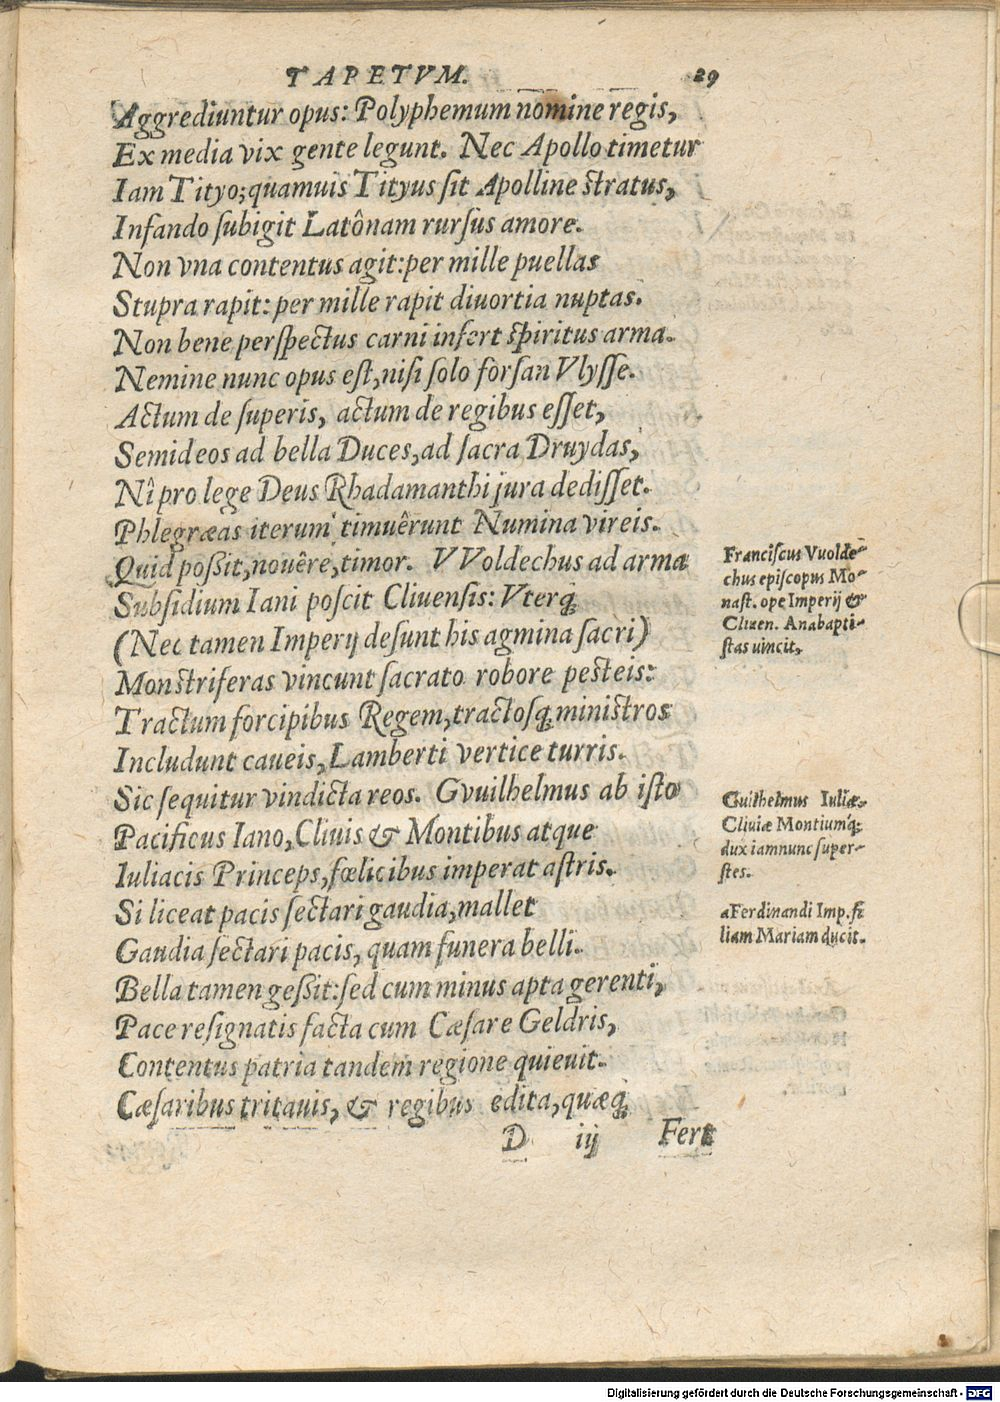 TAPETVM. 29
Aggrediuntur opus: Polyphemum nomine regis,
Ex media vix gente legunt. Nec Apollo timetur
Iam Tityo; quamuis Tityus sit Apolline stratus,
Infando subigit Latônam rursus amore.
Non vna contentus agit: per mille puellas
Stupra rapit: per mille rapit diuortia nuptas.
Non bene perspectus carni infert spiritus arma.
Nemine nunc opus est, nisi solo forsan Vlysse.
Actum de superis, actum de regibus esset,
Semideos ad bella Duces, ad sacra Druydas,
Nî pro lege Deus Rhadamanthi jura dedisset.
Phlegræas iterum timuêrunt Numina vireis.
Quid possit, nouêre, timor. VVoldechus ad arma
Subsidium Iani poscit Cliuensis: Vterq;
(Nec tamen Imperij desunt his agmina sacri)
Monstriferas vincunt sacrato robore pesteis:
Tractum forcipibus Regem, tractosq; ministros
Includunt caueis, Lamberti vertice turris.
Sic sequitur vindicta reos. Gvuilhelmus ab isto
Pacificus Iano, Cliuis & Montibus atque
Iuliacis Princeps, fœlicibus imperat astris.
Si liceat pacis sectari gaudia, mallet
Gaudia sectari pacis, quam funera belli.
Bella tamen gessit: sed cum minus apta gerenti,
Pace resignatis facta cum Cæsare Geldris,
Contentus patria tandem regione quieuit.
Cæsaribus tritauis, & regibus edita, quæq;
D iij Fert
Franciscus Vuolde-
chus episcopus Mo-
nast. ope Imperij &
Cliuen. Anabapti-
stas uincit.
Guilhelmus Iuliæ,
Cliuiæ Montiumq;
dux iamnunc super-
stes.
aFerdinandi Imp. fi
liam Mariam ducit.
Digitalisierung gefördert durch die Deutsche Forschungsgemeinschaft - DFG